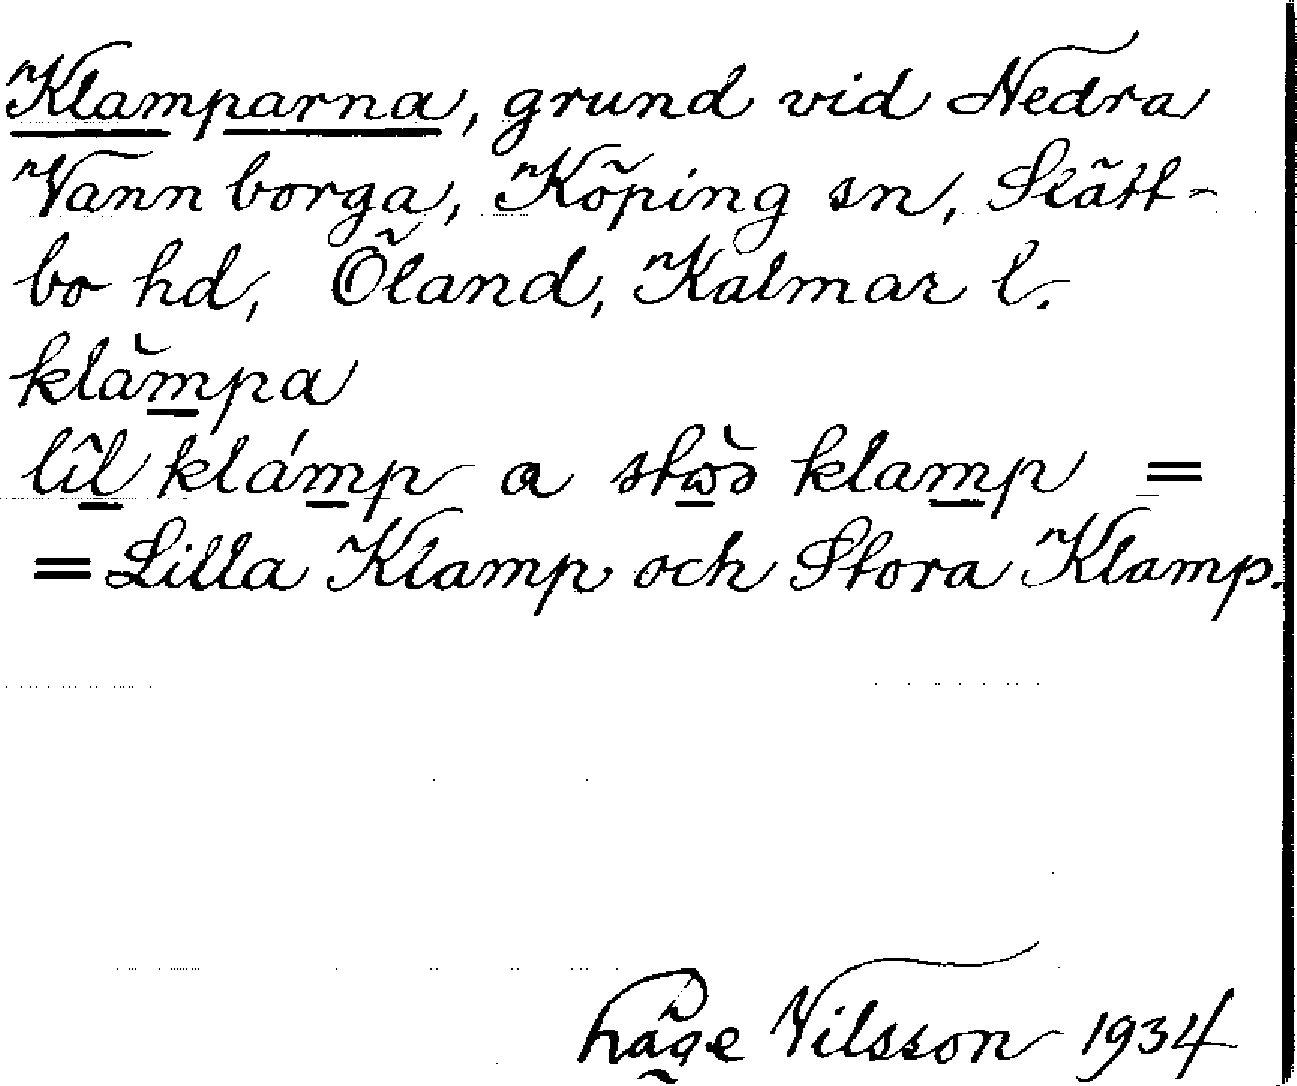 Klamparna, grund vid Nedra
Vannborga, Köping sn, Slätt-
bo hd, Öland, Kalmar l.
klàmpa
lìl klámp a stωs klamp =
= Lilla Klamp och Stora Klamp.
Nilsson 1934